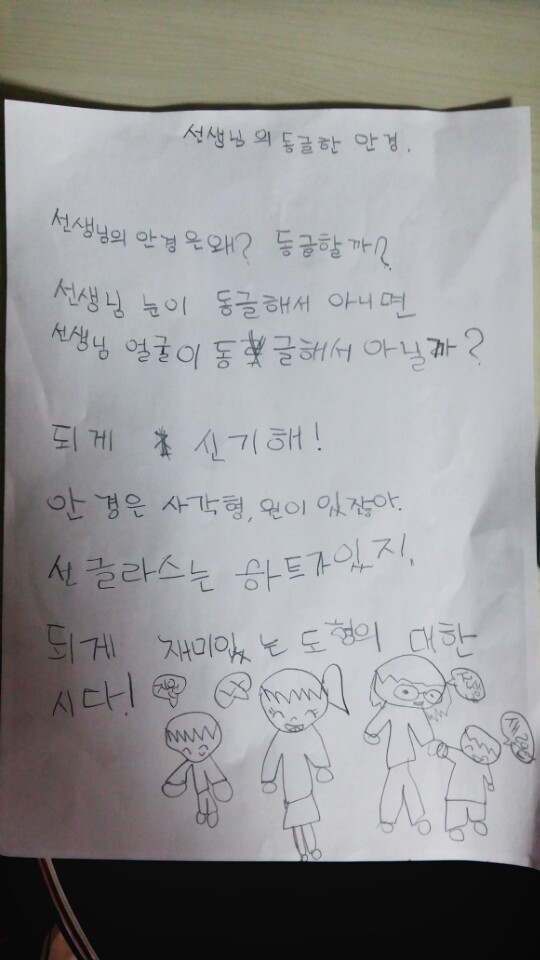 선생님의 동글한 안경.
선생님의 안경은 왜? 동글할까?
선생님 눈이 동글해서 아니면
선생님 얼굴이 동글해서 아닐까?
되게 신기해!
안경은 사각형, 원이 있잖아.
선글라스는 하트가 있지.
되게 재미있는 도형의 대한
시다!